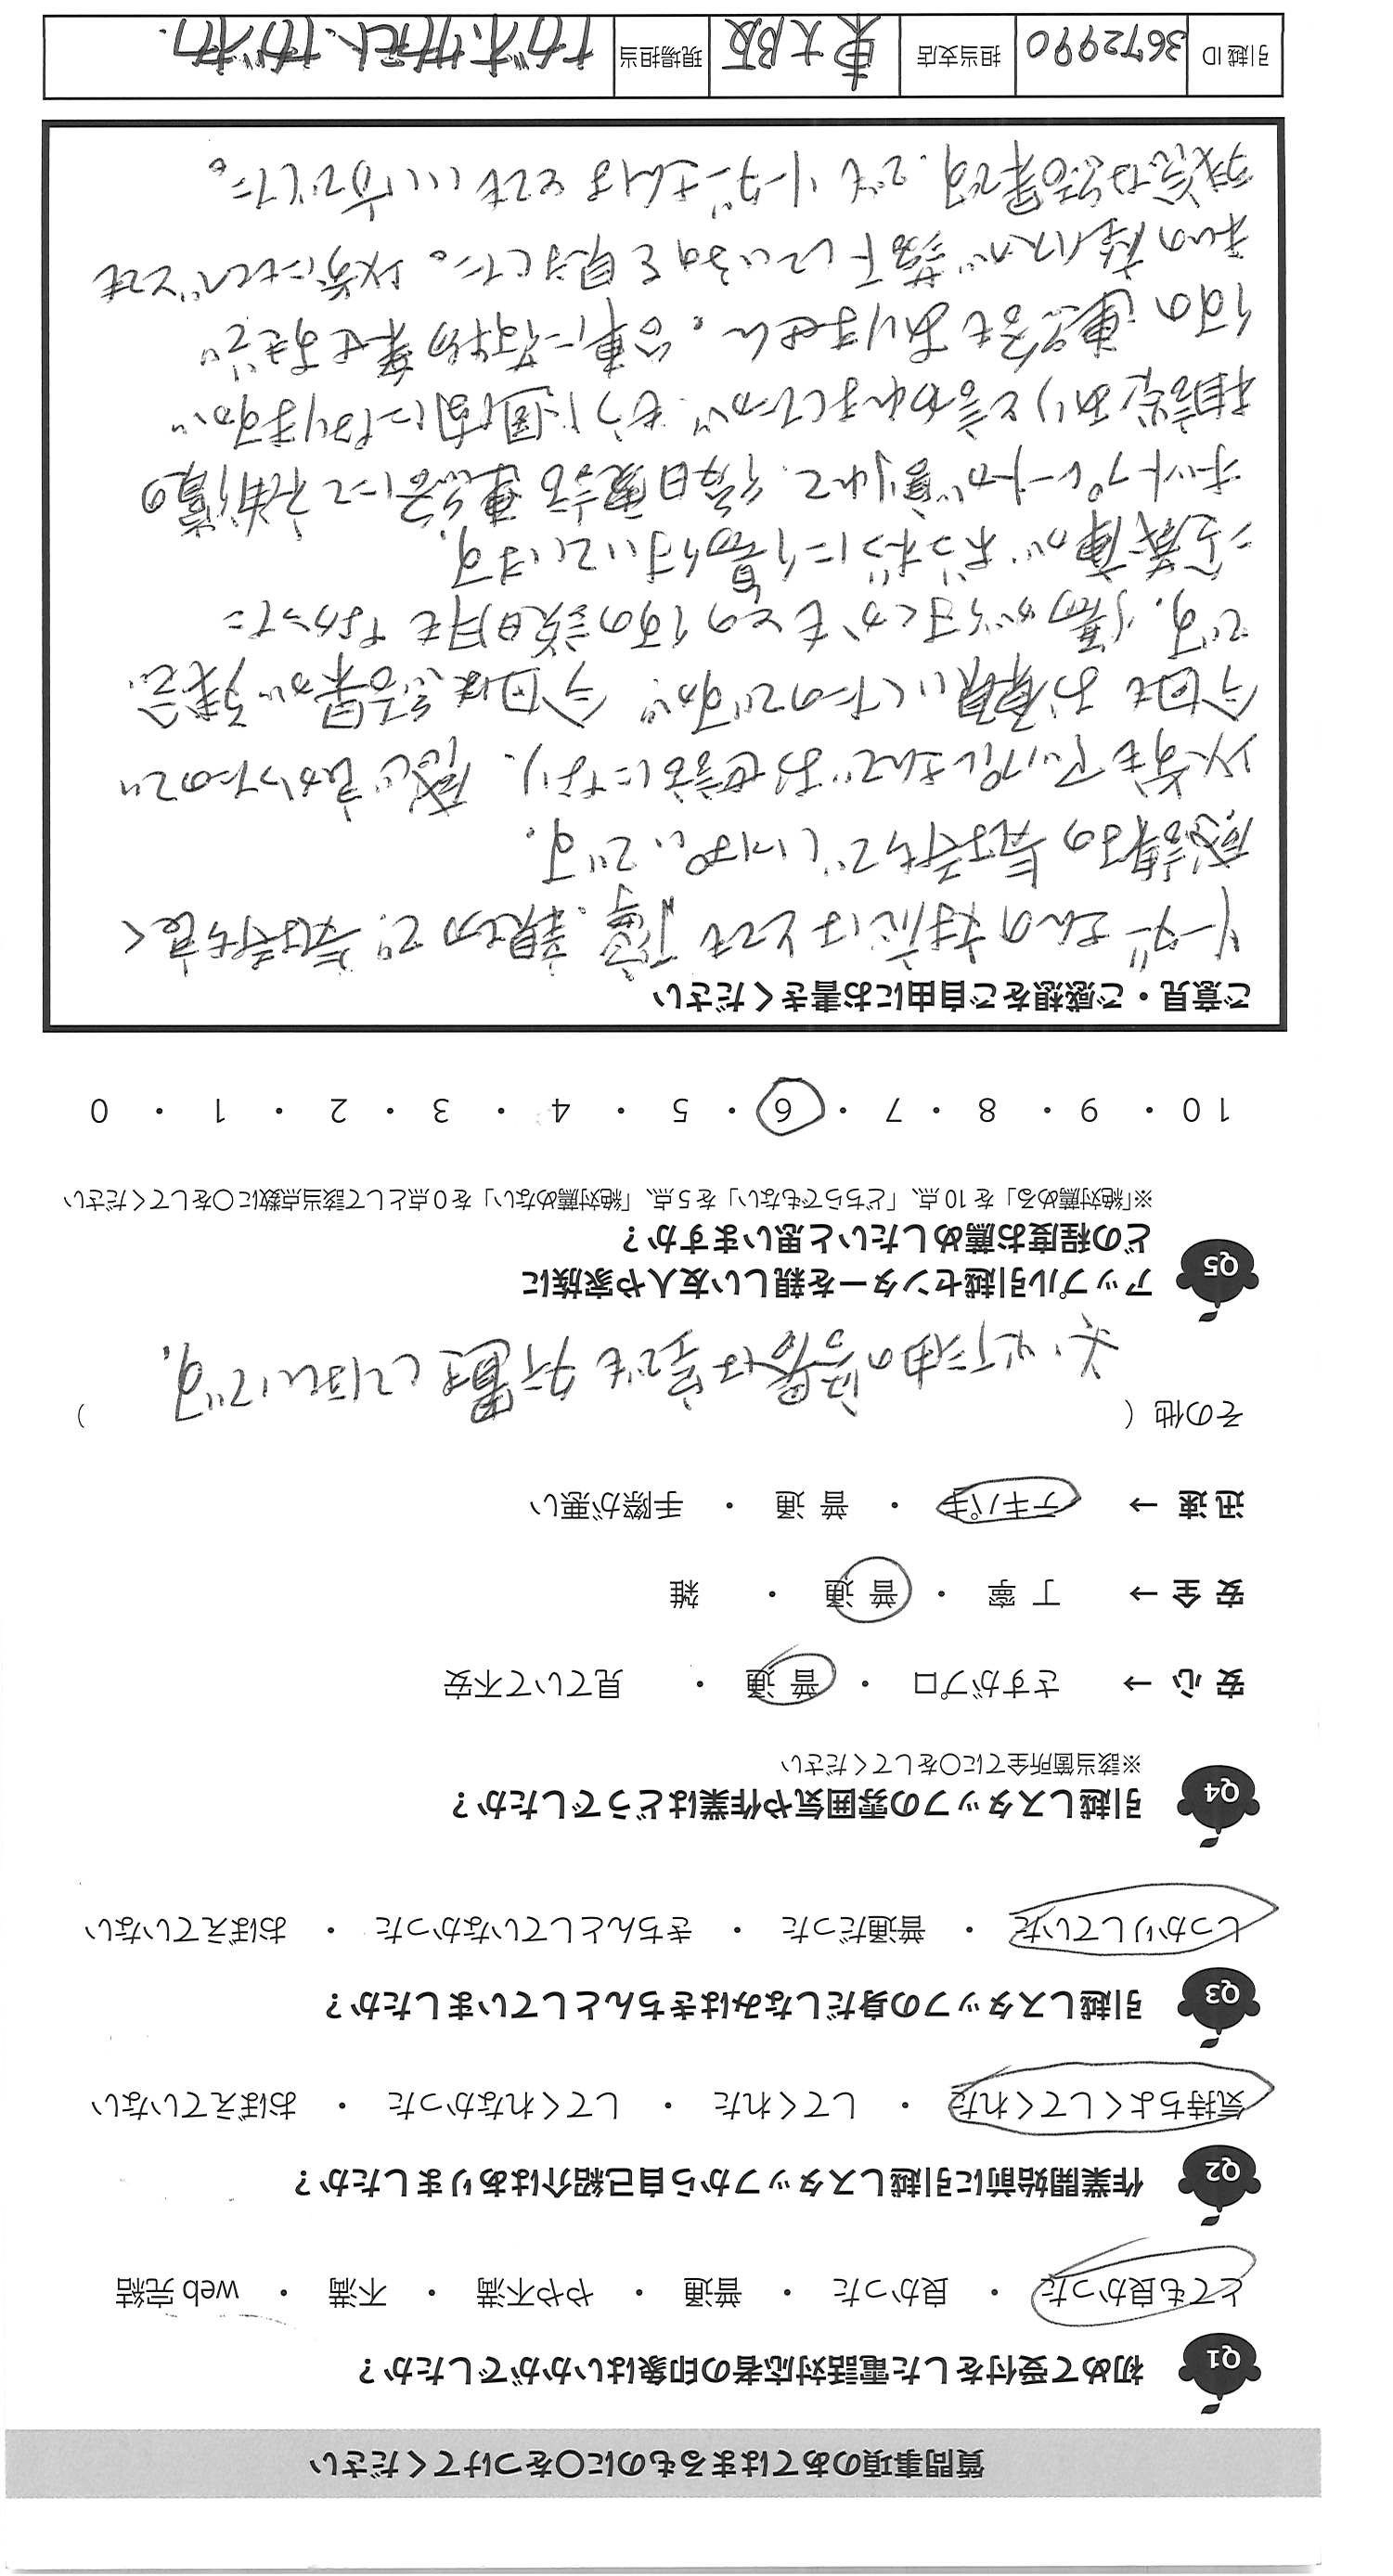 質問事項のあてはまるものに〇をつけてください
Q1 初めて受付をした電話対応者の印象はいかがでしたか？
とても良かった ・ 良かった ・ 普通 ・ やや不満 ・ 不満 ・ web 完結
Q2 作業開始前に引越しスタッフから自己紹介はありましたか？
気持ちよくしてくれた ・ してくれた ・ してくれなかった ・ おぼえていない
Q3 引越しスタッフの身だしなみはきちんとしていましたか？
しっかりしていた ・ 普通だった ・ きちんとしていなかった ・ おぼえていない
Q4 引越しスタッフの雰囲気や作業はどうでしたか？
※該当箇所全てに〇をしてください
安 心 → さすがプロ ・ 普 通 ・ 見ていて不安
安 全 → 丁 寧 ・ 普 通 ・ 雑
迅 速 → テキパキ ・ 普 通 ・ 手際が悪い
その他（ ）
は空でも処置してほしいです。
Q5 アップル引越センターを親しい友人や家族に
どの程度お薦めしたいと思いますか？
※「絶対薦める」を 10 点、「どちらでもない」を 5 点、「絶対薦めない」を 0 点として該当点数に〇をしてください
10 ・ 9 ・ 8 ・ 7 ・ 6 ・ 5 ・ 4 ・ 3 ・ 2 ・ 1 ・ 0
ご意見・ご感想をご自由にお書きください
リーダーさんの対応はとても丁寧、親切で、気持ち良く
感謝の気持ちでいっぱいです。
以前もアップルさんでお世話になり、感じ良かったので
今回もお願いしたのですが、今回は結果が残念
です。傷が行くかもとの何の説明もなかった
冷蔵庫がボコボコに傷付いています。
ホットプレートが割れて、後日電話連絡にて補償の
相談ありと言われましたが、もう1週間になりますが
何の連絡もありません。台車に荷物乗せすぎで
私の荷物が落下しているのを見ました。以前にくらべとても
残念な結果です。でもリーダーさんはとてもいい方でした。
引越 ID 3672990 担当支店 東大阪 現場担当